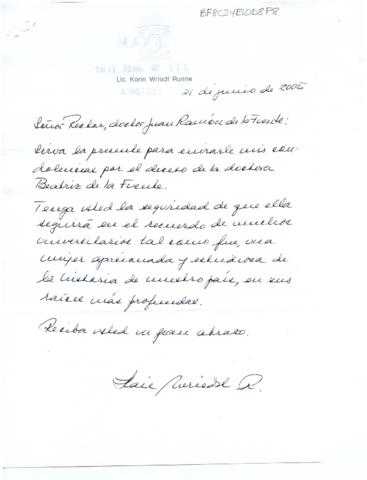 BF8C24E10D8P8
Lic. Karin Wriedt Runne
21 de junio de 2005
Señor Rector, doctor Juan Ramón de la Fuente:
Sirva la presente para enviarle mis con-
dolencias por el deceso de la doctora
Beatriz de la Fuente.
Tenga usted la seguridad de que ella
seguirá en el recuerdo de muchos
universitarios tal como fue, una
mujer apasionada y estudiosa de
la historia de nuestro país, en sus
raíces más profundas.
Reciba usted un gran abrazo.
Wriedt R.